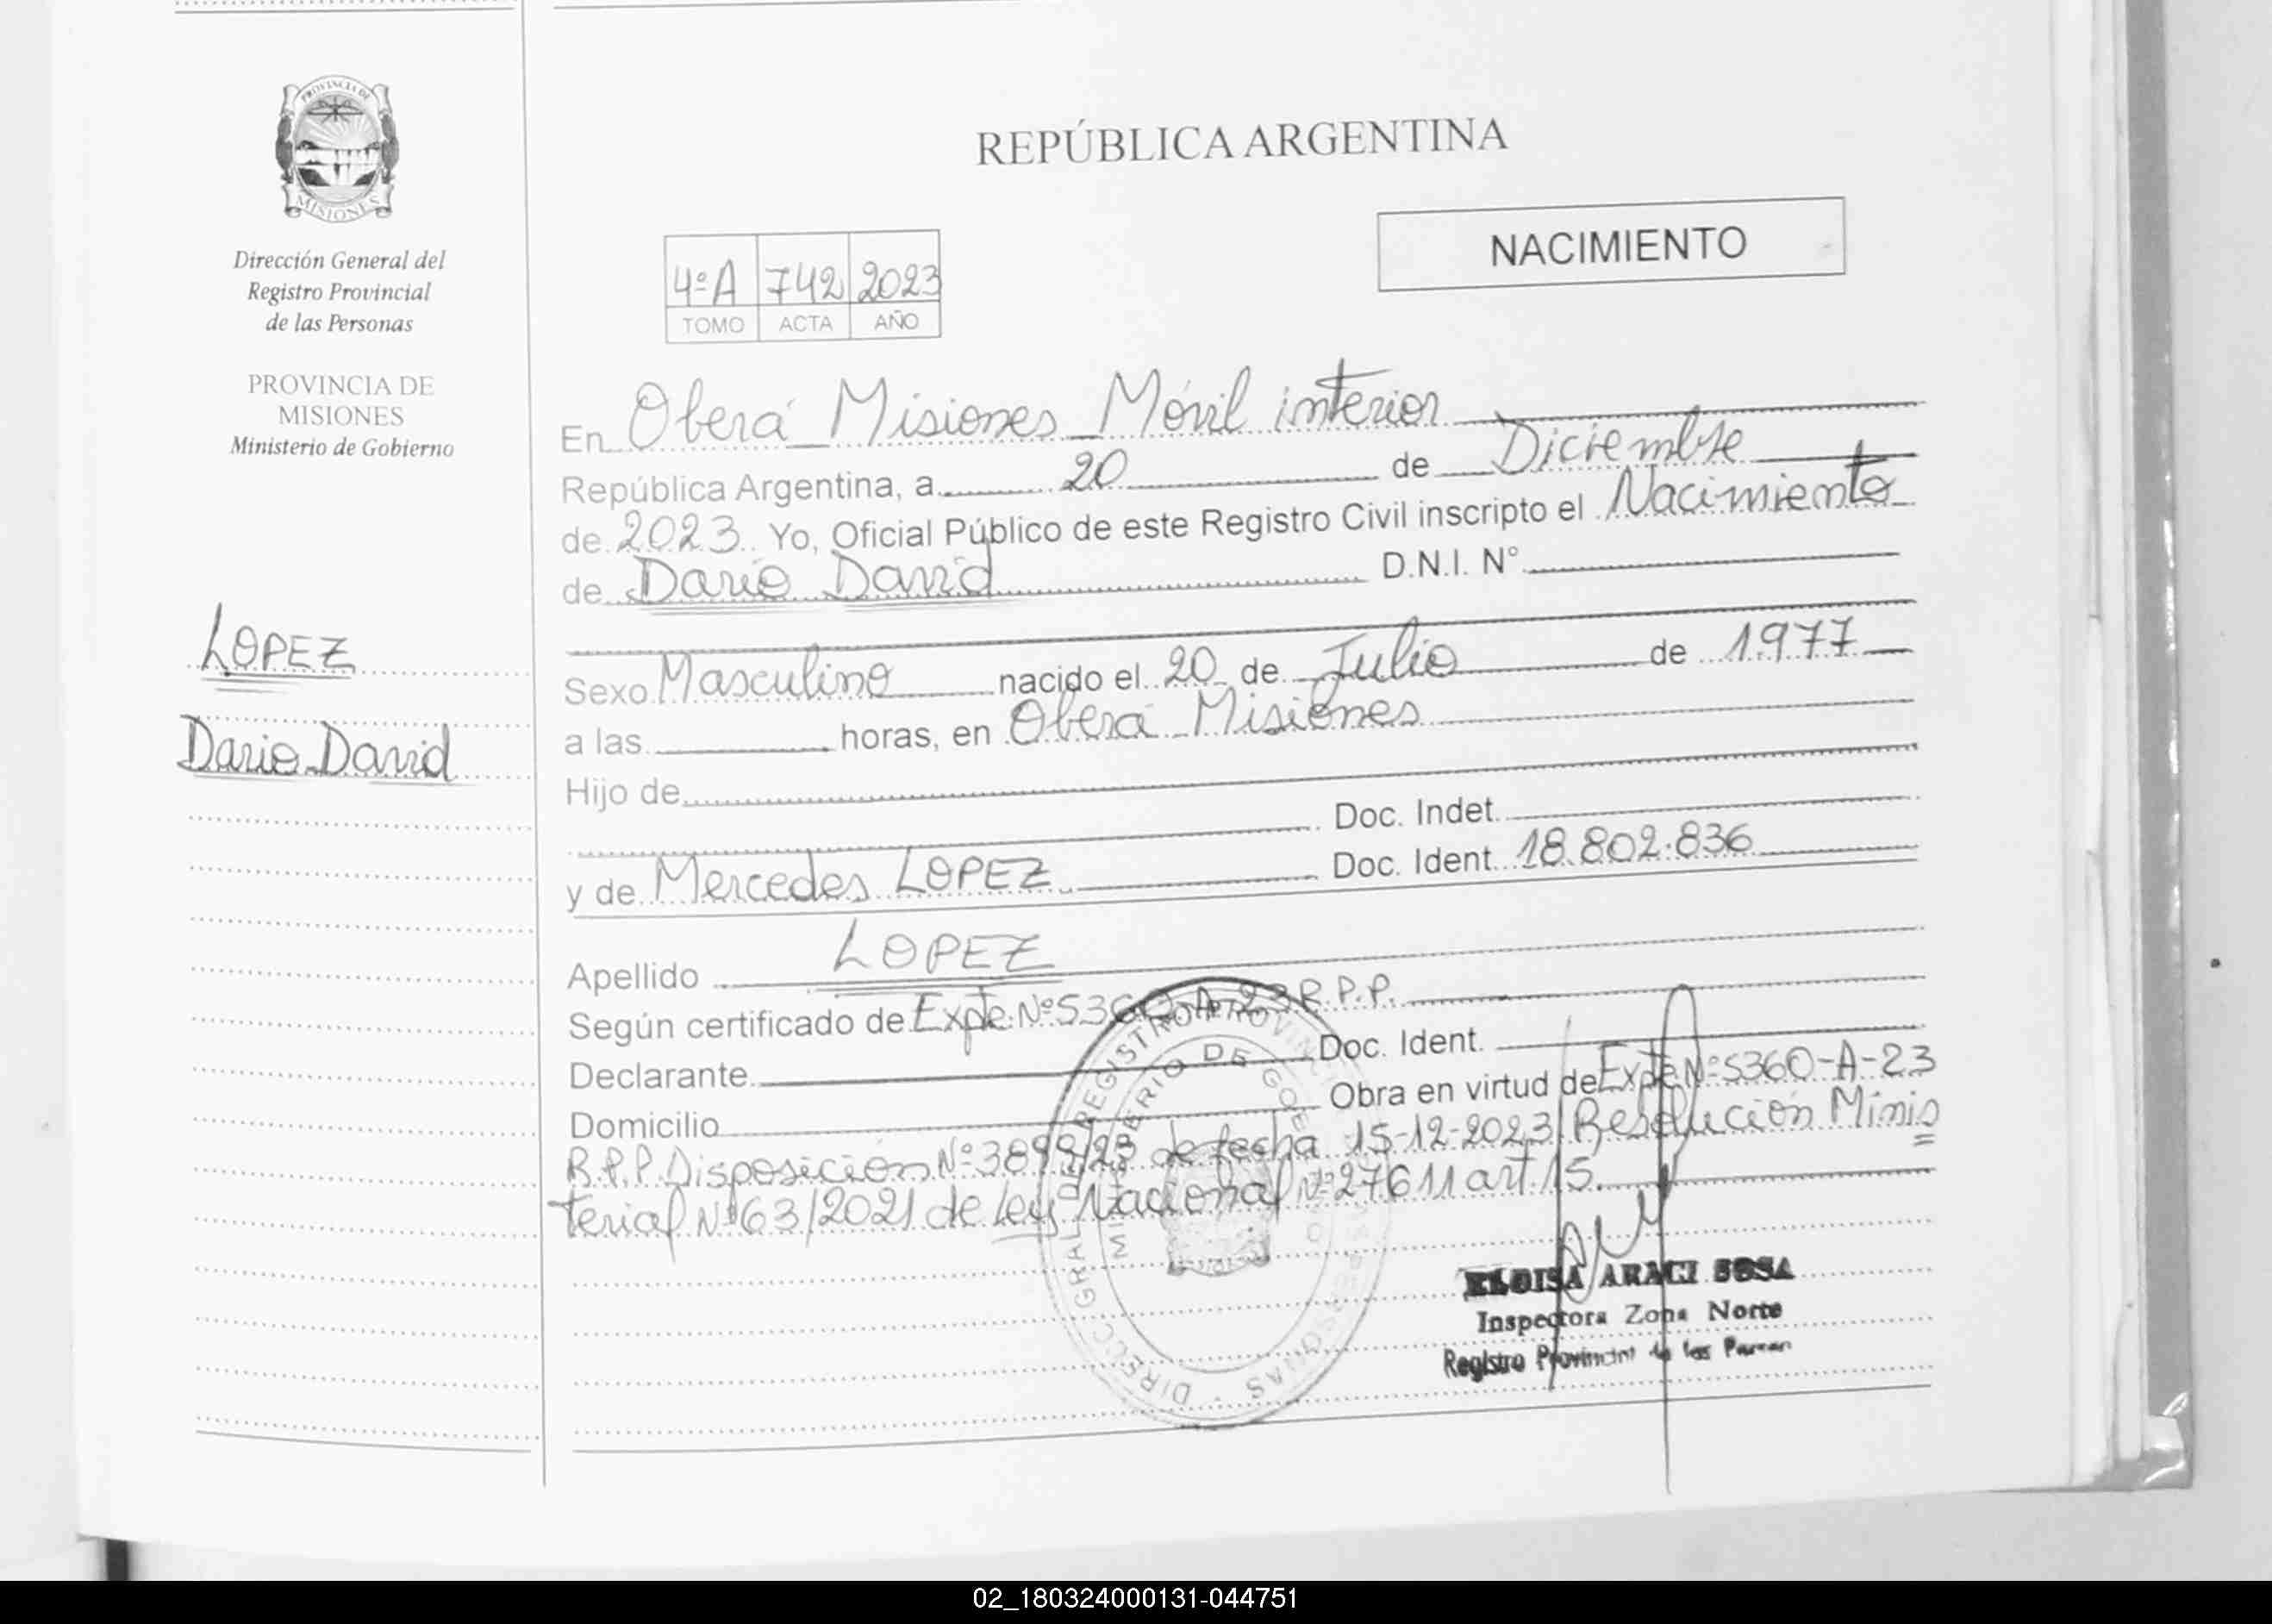 PROVINCIA DE
MISIONES
Dirección General del
Registro Provincial
de las Personas
PROVINCIA DE
MISIONES
Ministerio de Gobierno
LOPEZ
Dario David
REPÚBLICA ARGENTINA
NACIMIENTO
4ºA 742 2023
TOMO ACTA AÑO
En Oberá Misiones Móvil interior
República Argentina, a 20 de Diciembre
de 2023 Yo, Oficial Público de este Registro Civil inscripto el Nacimiento
de Dario David D.N.I. Nº
Sexo Masculino nacido el 20 de Julio de 1977
a las horas, en Oberá Misiones
Hijo de
Doc. Indet.
y de Mercedes LOPEZ Doc. Ident. 18.802.836
Apellido LOPEZ
Según certificado de Expte. Nº 5360-A-23 R.P.P.
Declarante Doc. Ident.
Domicilio Obra en virtud de Expte Nº 5360-A-23
R.P.P. Disposición Nº 3899/23 de fecha 15-12-2023/Resolución Minis
terial Nº 63/2021 de Ley Nacional Nº 27611 art. 15.
DIRECC GRAL DE REGISTRO PROVINCIAL PERSONAS
MINISTERIO DE GOBIERNO
ELOISA ARACI SOSA
Inspectora Zona Norte
Registro Provincial de las
02_180324000131-044751